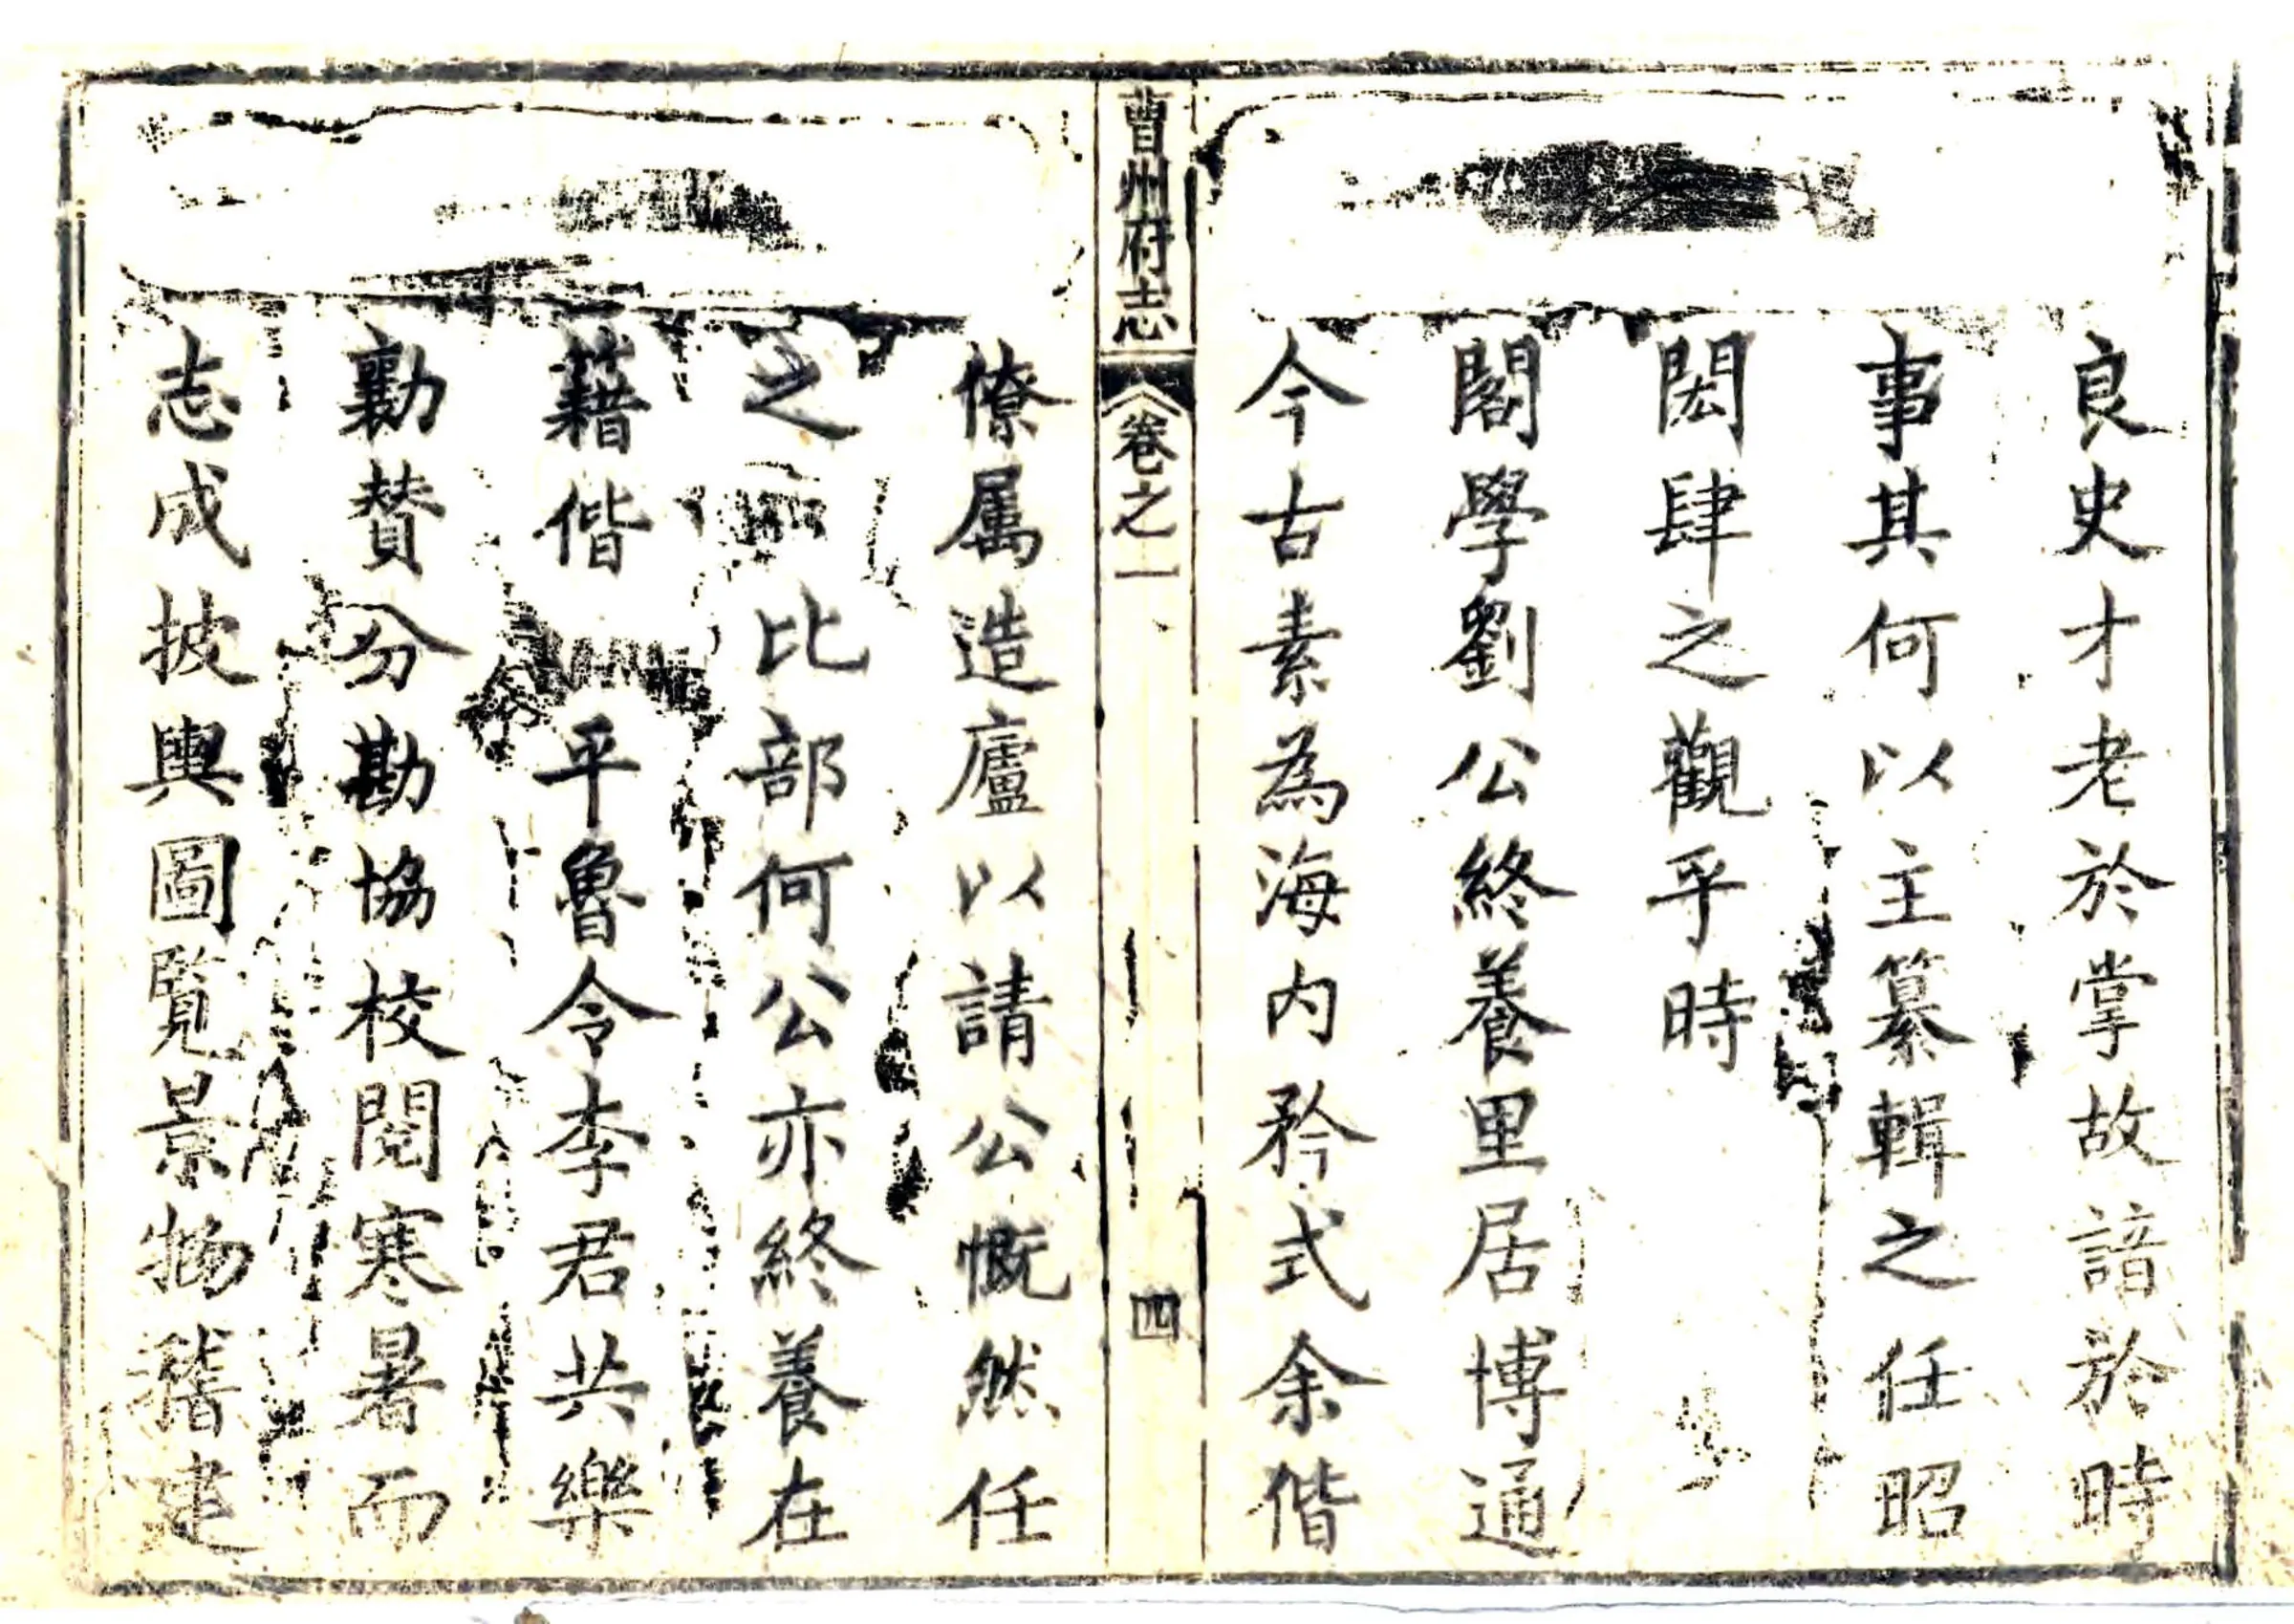 良史才老於掌故諳於時
事其何以主纂輯之任昭
閎肆之觀乎時
閣學劉公終養里居博通
今古素為海内矜式余偕
曹州府志 卷之一 四
僚属造廬以請公慨然任
之 比部何公亦終養在
藉偕 平魯令李君共樂
勷賛分勘協校閱寒暑而
志成披輿圖覽景物稽建